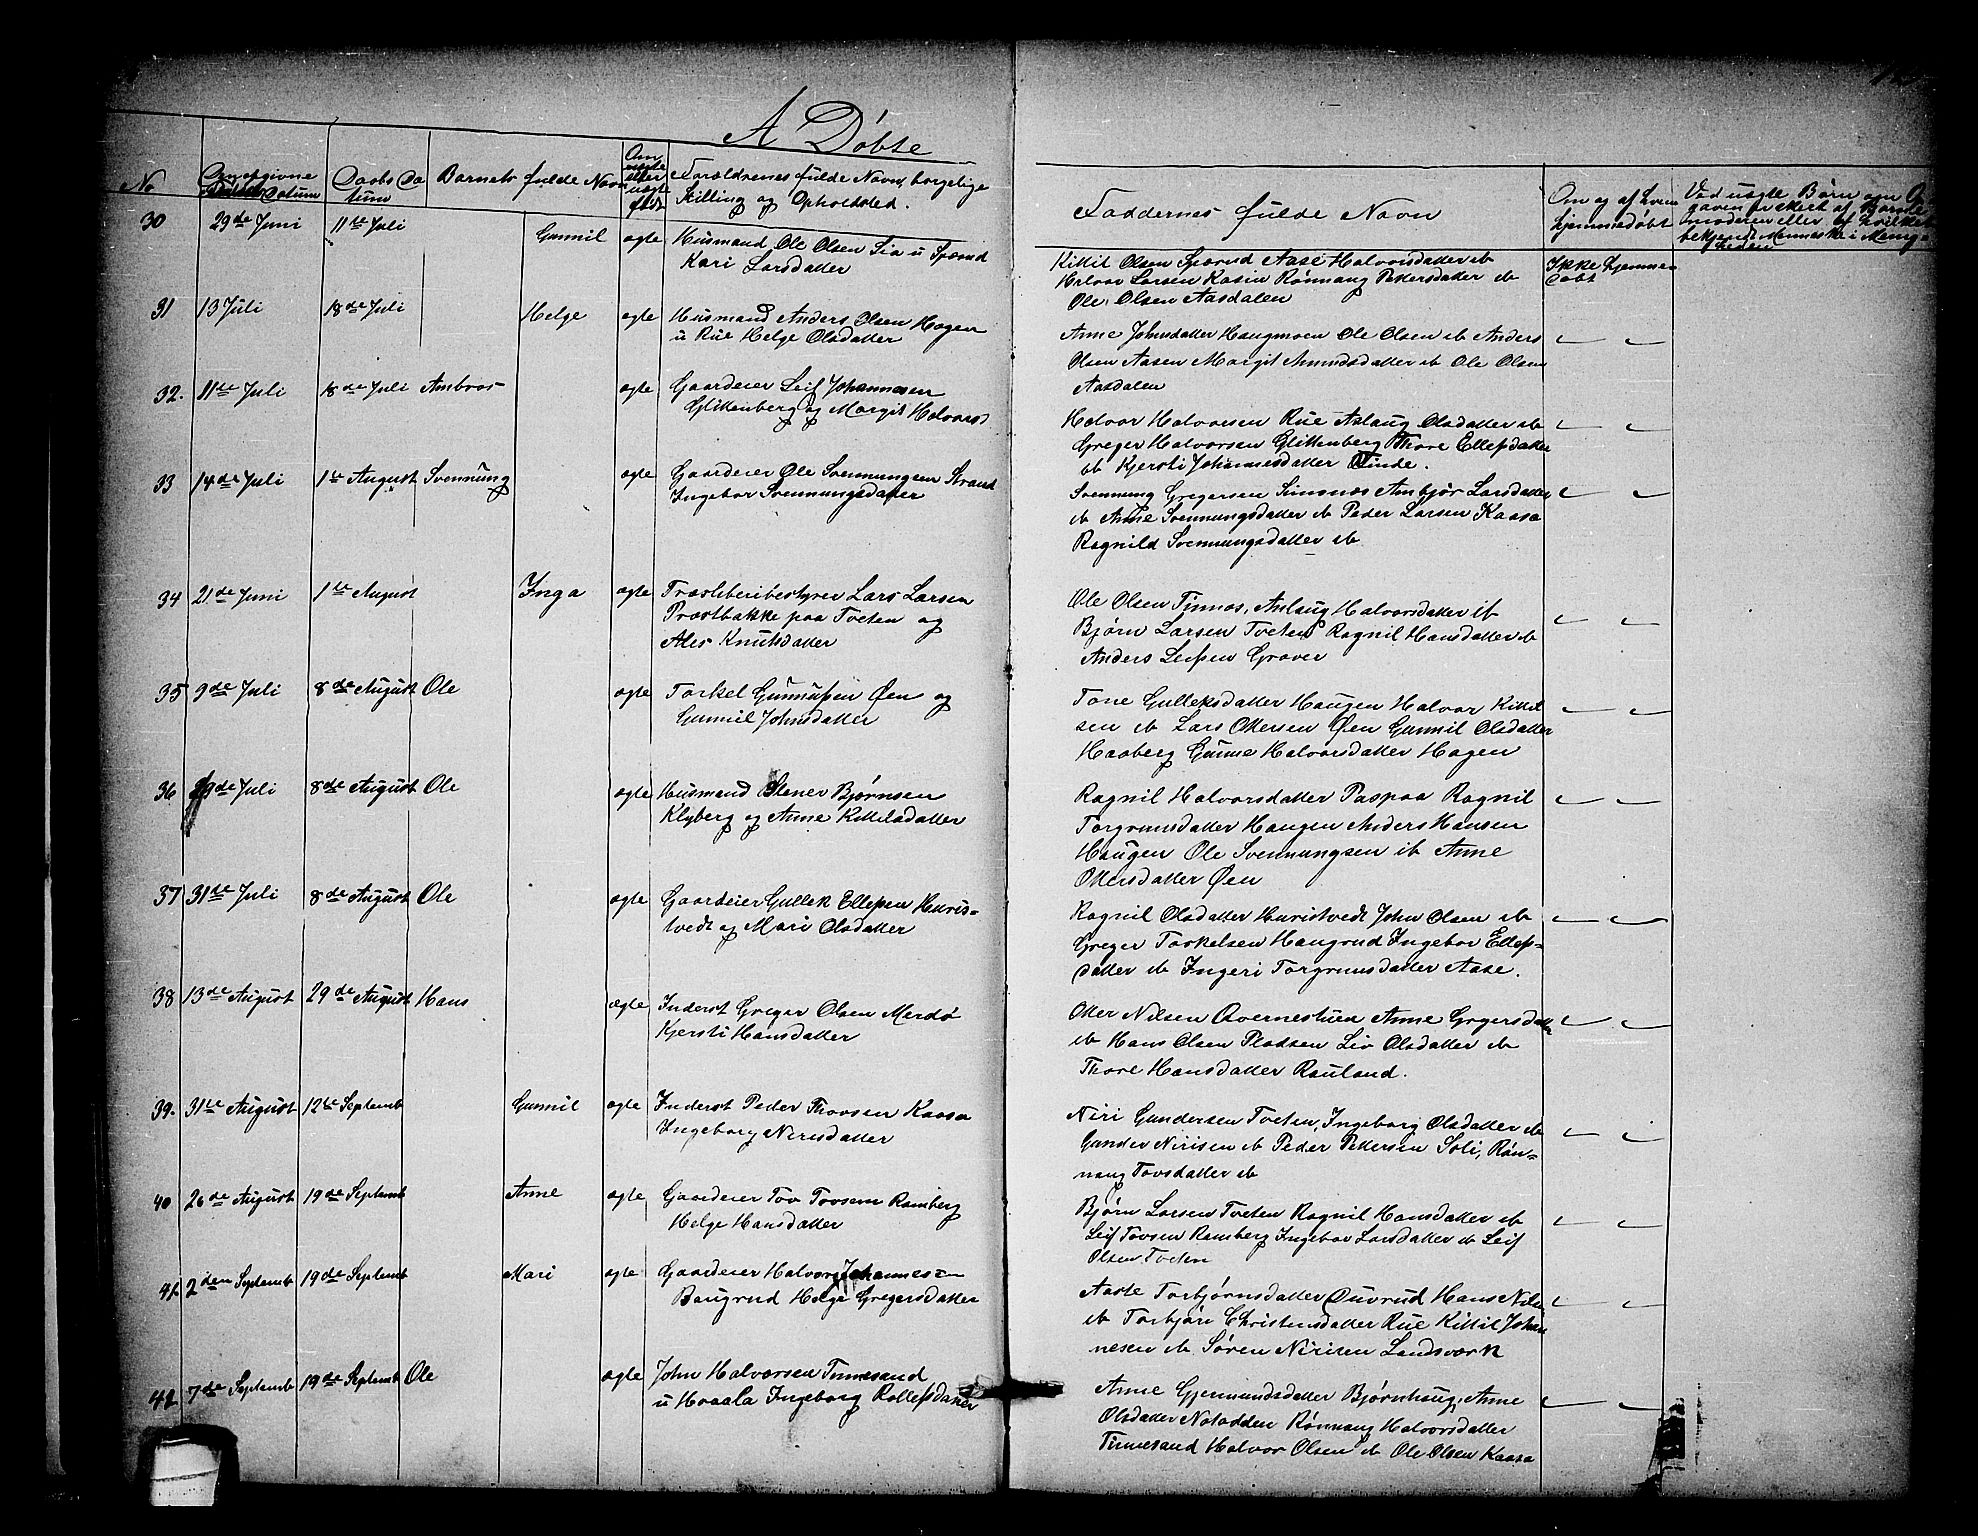 A Døbte
No
Om
ægte
eller
uægte
født
Barnets fulde Navn
Forældrenes fulde Navn, borgelige
Stilling og Opholdsted.
Faddernes fulde Navn
hjemmedøbt
30 29de Juni 11te Juli Gunnil ægte Husmand Ole Olsen Lia u Spærud
Kari Larsdatter
Kittil Olsen Spærud Aase Halvorsdatter ib
Halvor Larsen Kasin Rønnaug Petersdatter ib
Ole Olsen Aasdalen
Ikke hjemme
døbt
31 13 Juli 18de Juli Helge ægte Husmand Anders Olsen Hagen
u Rue Helge Olsdatter
Anne Johnsdatter Haugmoen Ole Olsen ib Anders
Olsen Aasen Margit Amundsdatter ib Ole Olsen
Aasdalen
32. 11te Juli 18de Juli Ambros ægte Gaardeier Leif Johannesen
Glittenberg og Margit Halvorsd
Halvor Halvorsen Rue Aslaug Olsdatter ib
Greger Halvorsen Glittenberg Thore Ellefsdatter
ib Kjersti Johannesdatter Tinde.
33 14de Juli 1te August Svennung ægte Gaardeier Ole Svennungsen Strand
Ingebor Svennungsdatter
Svennung Gregersen Simones Ambjør Larsdatter
ib Anne Svennungsdatter ib Peder Larsen Kaasa
Ragnild Svennungsdatter ib
34 21de Juni 1te August Inga ægte Træsliberibestyrer Lars Larsen
Præstbakke paa Tveten og
Ales Knutsdatter
Ole Olsen Tinnæs, Aslaug Halvorsdatter ib
Bjørn Larsen Tveten Ragnil Hansdatter ib
Anders Leifsen Graver
35 9de Juli 8de August Ole ægte Torkel Gunnufsen Øen og
Gunnil Johnsdatter
Tone Gulleksdatter Haugen Halvor Kittil
sen ib Lars Ottersen Øen Gunnil Olsdatter
Haaberg Gunne Halvorsdatter Hagen
36 29de Juli 8de August Ole ægte Husmand Stener Bjørnsen
Klyberg og Anne Kittilsdatter
Ragnil Halvorsdatter Paspaa Ragnil
Torgrimsdatter Haugen Anders Hansen
Haugen Ole Svennungsen ib Anne
Ottersdatter Øen
37 31te Juli 8de August Ole ægte Gaardeier Gullek Ellefsen Huris-
tvedt og Mari Olsdatter
Ragnil Olsdatter Huristvedt John Olsen ib
Greger Torkelsen Haugrud Ingebor Ellefs-
datter ib Ingeri Torgrimsdatter Aase.
38 13de August 29de August Hans ægte Inderst Greger Olsen Merdø
Kjersti Hansdatter
Otter Nilsen Qvernestuen Anne Gregersdatter
ib Hans Olsen Pladsen Liv Olsdatter ib
Thore Hansdatter Rauland.
39. 31te August 12te Septemb Gunnil ægte Inderst Peder Thovsen Kaasa
Ingeborg Nirisdatter
Niri Gundersen Tveten, Ingeborg Olsdatter ib
Gunder Nirisen ib Peder Pettersen Soli, Røn-
naug Tovsdatter ib
40 26de August 19de Septemb Anne ægte Gaardeier Tov Tovsen Ramberg
Helge Hansdatter
Bjørn Larsen Tveten Ragnil Hansdatter ib
Leif Tovsen Ramberg Ingebor Larsdatter ib Leif
Olsen Tveten
41. 2den Septemb 19de Septemb Mari ægte Gaardeier Halvor Johannes-
Baugrud Helge Gregersdatter
Aaste Torbjørnsdatter Ouvrud Hans Nilsen
ib Torbjør Christensdatter Rue Kittil Johan
nesen ib Søren Nirisen Landsværk
42 7de Septemb 19de Septemb Ole ægte John Halvorsen Tinnesand
u Hvaala Ingeborg Rollefsdatter
Anne Gjermundsdatter Bjørnhaug, Anne
Olsdatter Notodden Rønnaug Halvorsdatter
Tinnesand Halvor Olsen ib Ole Olsen Kaasa